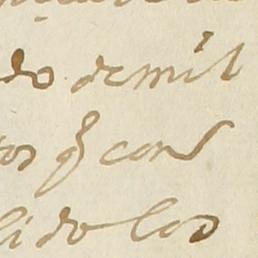 do de mil
tos q̃ con
lido los